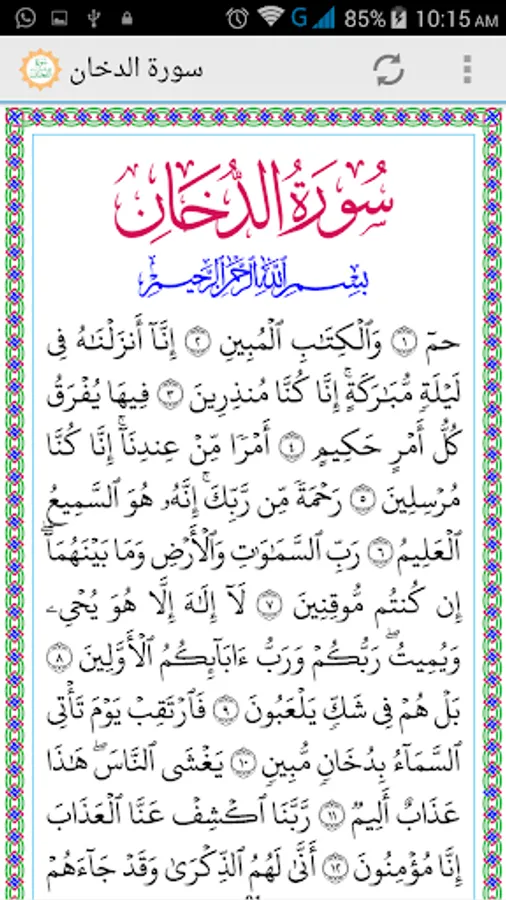 85% 10:15 AM
سورة الدخان
سُورَةُ الدُّخَانِ
بِسْمِ اللَّهِ الرَّحْمَٰنِ الرَّحِيمِ
حمٓ ۝١ وَٱلْكِتَٰبِ ٱلْمُبِينِ ۝٢ إِنَّآ أَنزَلْنَٰهُ فِى
لَيْلَةٍ مُّبَٰرَكَةٍ ۚ إِنَّا كُنَّا مُنذِرِينَ ۝٣ فِيهَا يُفْرَقُ
كُلُّ أَمْرٍ حَكِيمٍ ۝٤ أَمْرًا مِّنْ عِندِنَآ ۚ إِنَّا كُنَّا
مُرْسِلِينَ ۝٥ رَحْمَةً مِّن رَّبِّكَ ۚ إِنَّهُۥ هُوَ ٱلسَّمِيعُ
ٱلْعَلِيمُ ۝٦ رَبِّ ٱلسَّمَٰوَٰتِ وَٱلْأَرْضِ وَمَا بَيْنَهُمَآ ۖ
إِن كُنتُم مُّوقِنِينَ ۝٧ لَآ إِلَٰهَ إِلَّا هُوَ يُحْىِۦ
وَيُمِيتُ ۖ رَبُّكُمْ وَرَبُّ ءَابَآئِكُمُ ٱلْأَوَّلِينَ ۝٨
بَلْ هُمْ فِى شَكٍّ يَلْعَبُونَ ۝٩ فَٱرْتَقِبْ يَوْمَ تَأْتِى
ٱلسَّمَآءُ بِدُخَانٍ مُّبِينٍ ۝١٠ يَغْشَى ٱلنَّاسَ ۖ هَٰذَا
عَذَابٌ أَلِيمٌ ۝١١ رَّبَّنَا ٱكْشِفْ عَنَّا ٱلْعَذَابَ
إِنَّا مُؤْمِنُونَ ۝١٢ أَنَّىٰ لَهُمُ ٱلذِّكْرَىٰ وَقَدْ جَآءَهُمْ